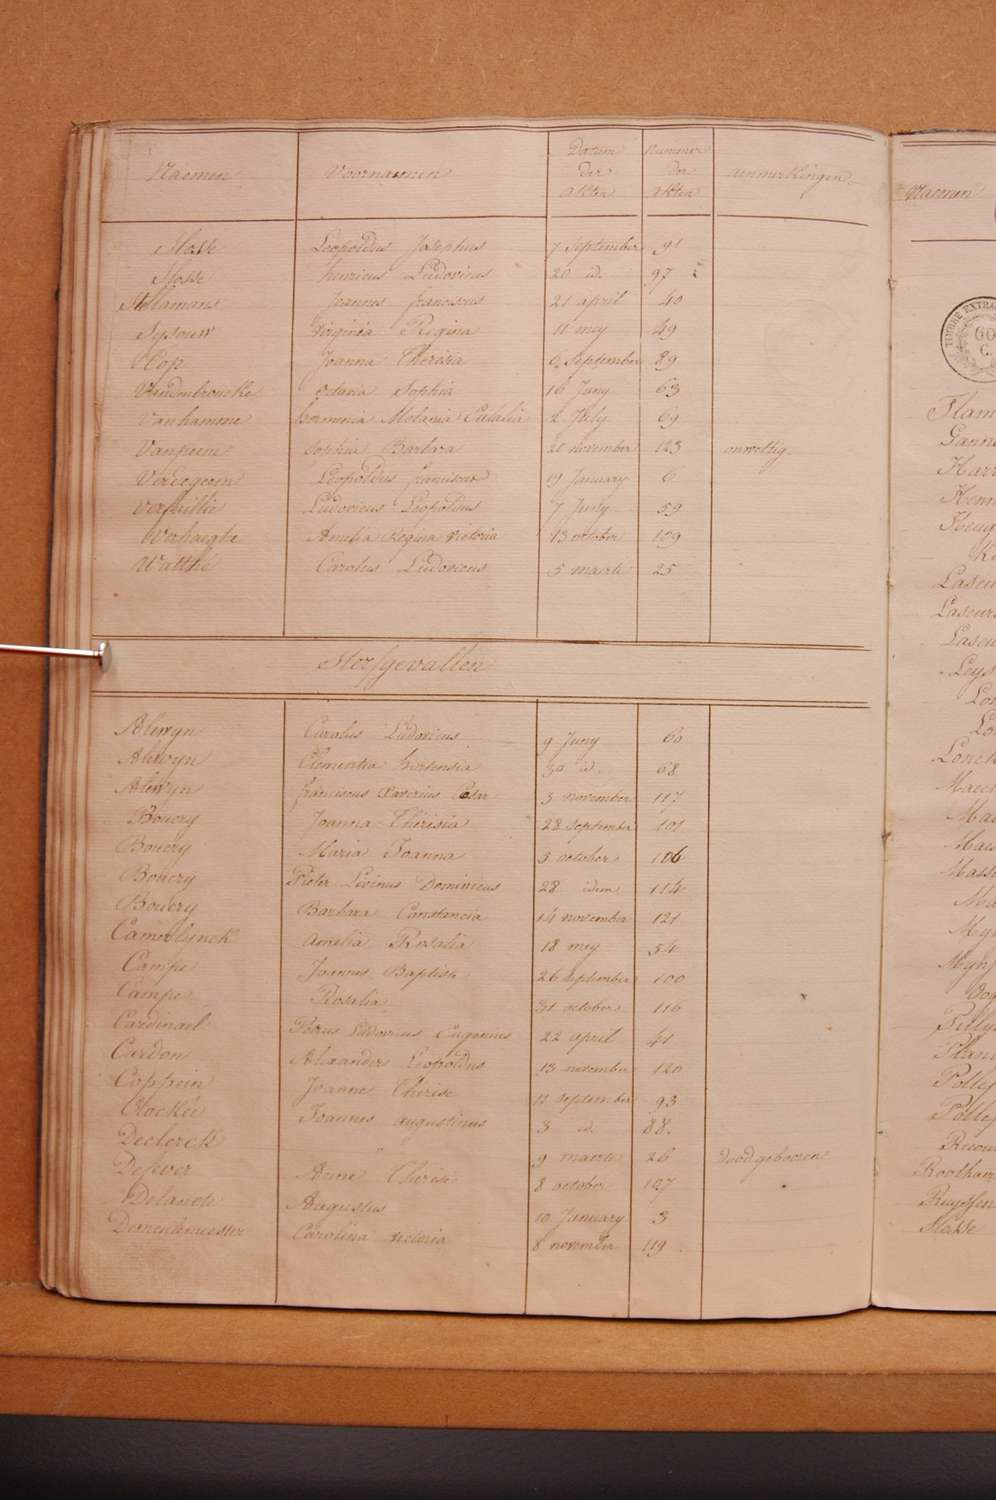 Naemen Voornaemen Datum der akten Nummer der akten aenmerkingen
Mosse Leopoldus Josephus 7 September 91
Mosse henricus Ludovicus 20 id. 97
Joannes franciscus 21 april 40
Virginia Regina 11 mey 49
Cop Joanna Theresia 6 September 89
Vandenbroucke octavia Sophia 16 Juny 63
Vanhamme hermenia Melania Eulalia 2 July 69
Vanpeene Sophia Barbara 20 november 123 onwettig.
Verseegem Leopoldus franciscus 19 January 6
Verfaillie Ludovicus Leopoldus 7 Juny 59
Verhaeghe Amelia Regina Victoria 13 october 109
Watthé Carolus Ludovicus 5 maerte 25
Sterfgevallen
Alewyn Carolus Ludovicus 9 Juny 60
Alewyn Clementia hortensia 30 id. 68
Alewyn franciscus Xaverius Cesar 3 november 117
Bouery Joanna Thérésia 28 September 101
Bouery Maria Joanna 5 october 106
Bouery Pieter Livinus Dominicus 28 idem 114
Bouery Barbara Constancia 14 november 121
Camerlynck Amelia Rosalia 18 mey 54
Campe Joannes Baptiste 26 September 100
Campe Rosalia 31 october 116
Cardinael Petrus Ludovicus Eugenius 22 april 41
Cardon Alexander Leopoldus 13 november 120
Coppein Joanne Thérèse 12 september 93
Joannes augustinus 3 id. 88.
Declerck " 9 maerte 26 doodgeboren
Defever Anne Thérèse 8 october 107
Delaeote Augustus 10 January 3
Demeulemeester Carolina victoria 8 november 119.
Naemen
TIMBRE EXTRA
60
C.
Flam
Gann
Harr
Henn
Laseu
Laseur
Laseu
Leys
Lon
Lonck
Maec
Mae
Maes
Masse
Ma
My
Myn
Pilly
Plan
Polle
Polle
Roothae
Ruyssen